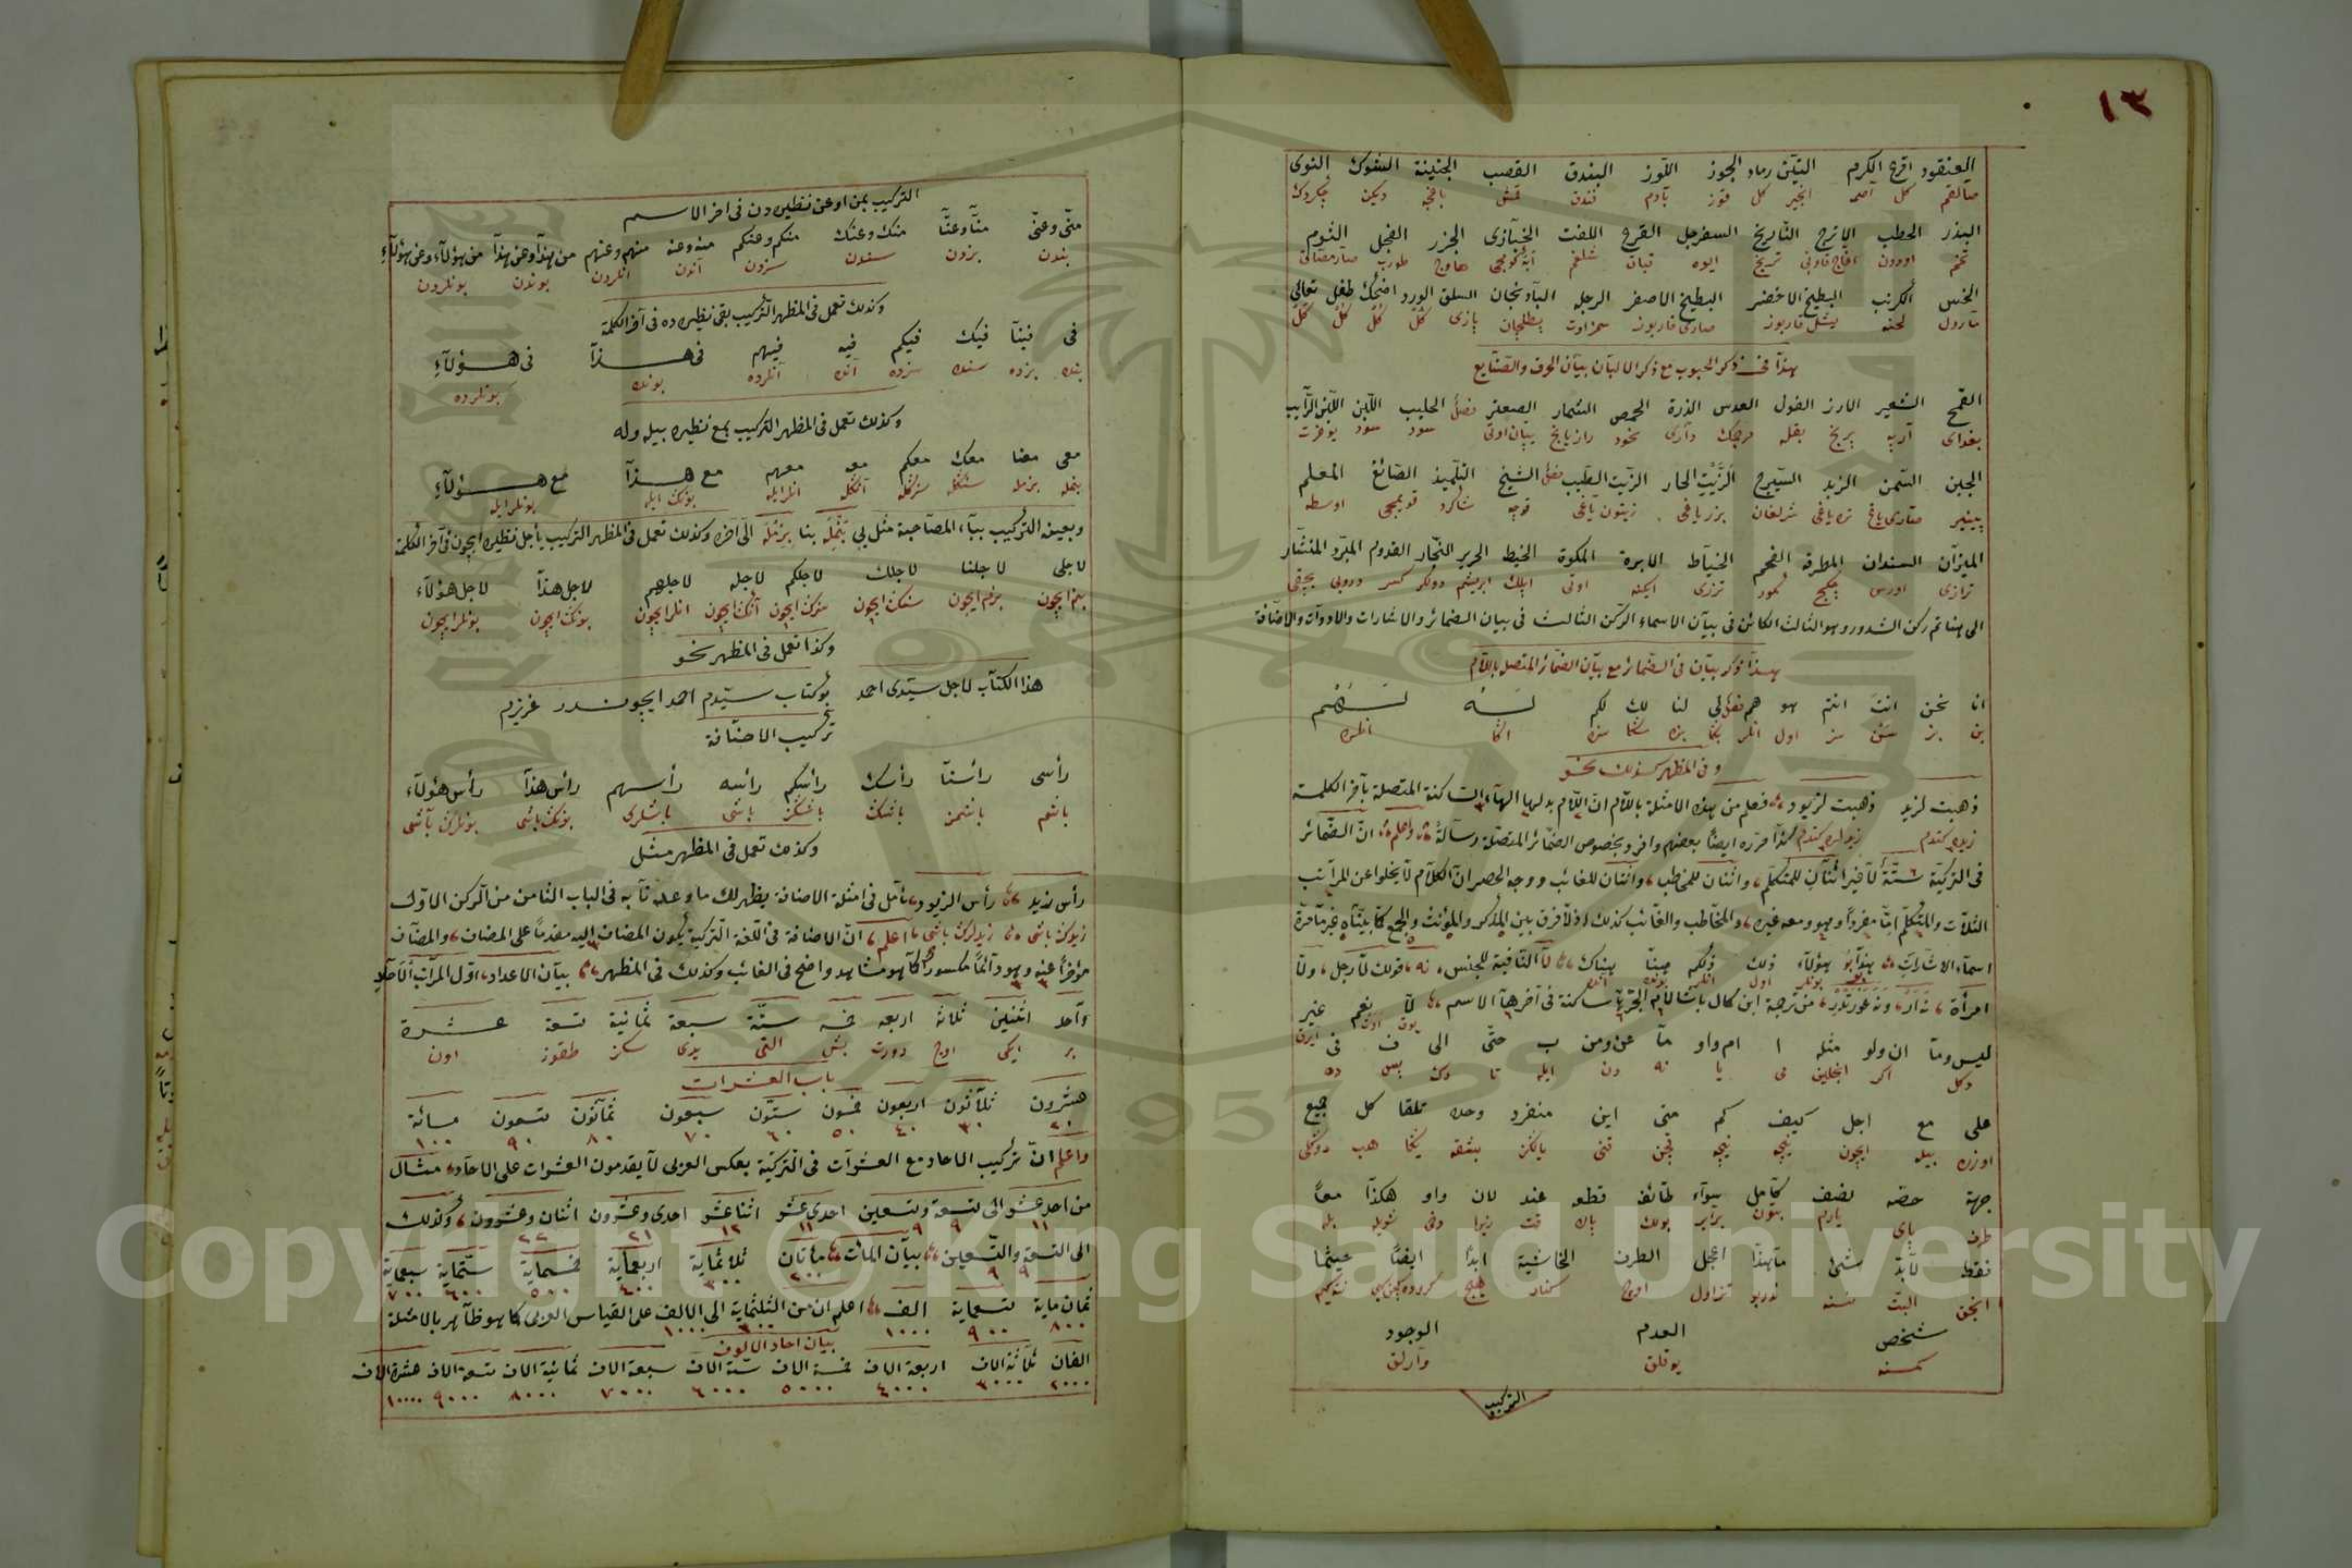 ١٣
العنقود اقرع الكرم التين رماد الجوز اللوز البندق القصب الجنينة الشوك النوى
كل انجير كل قوز بادم فندق قمش باغچه ديكن چكردك
البذر الحطب الاترج النارنج السفرجل القرع اللفت الخبازى الجزر الفجل الثوم
تخم اودون ترنج ايوه قباق شلغم هاوج طورپ
الخس الكرنب البطيخ الاخضر البطيخ الاصفر الرجله البادنجان السلق الورد اضحك طفل تعالى
مارول لحنه يشل قارپوز صارى قارپوز سمزاوت پطلجان پازى كل كل كل كل
هذا فى ذكر الحبوب مع ذكر الالبان ببيان الحرف والصنايع
القمح الشعير الارز الفول العدس الذرة الحمص الشمار الصعتر فصل الحليب اللبن اللبن الرايب
بغداى آرپه پرنج بقله مرجمك دارى نخود رازيانج سود سود يوغرت
الجبن السمن الزبد السيرج الزيت الحار الزيت الطيب فصل الشيخ التلميذ الصائغ المعلم
پينير صارى ياغ تره ياغى شرلغان بزر ياغى زيتون ياغى قوجه شاكرد قويمجى اوسطه
الميزان السندان المطرقة الفحم الخياط الابرة المكوة الخيط الحرير النجار القدوم المبرد المنشار
ترازى اورس چكيج كمور ترزى ايكنه اوتى ايپلك ابريشم دولكر كسر بچقى
الى هنا تم ركن الشدور وهو الثالث الكائن فى بيان الاسماء الركن الثالث فى بيان الضمائر والاشارات والادوات والاضافة
هذا مؤكد ببيان فى الضمائر مع بيان الضمائر المتصل باللام
انا نحن انت انتم هو هم فصل لى لنا لك لكم لــه لــهم
بن بز سن سز اول انلر بكا بزه سكا سزه اكا انلره
وفى المظهر كذلك نحو
ذهبت لزيد ذهبت لزيود فعلم من هذه الامثلة باللام ان اللام بدلها الهآء الساكنة المتصلة بآخر الكلمة
زيده كتدم زيدلره كتدم هكذا قرره ايضا بعضهم وافرد بخصوص الضمائر المتصلة رسالة واعلم ان الضمائر
فى التركية ستة لا غير اثنان للمتكلم واثنان للمخاطب واثنان للغائب ووجه الحصر ان الكلام لا يخلوا عن المراتب
الثلاث والمتكلم اما مفردا وهو ومعه غيره والمخاطب والغائب كذلك اذ لا فرق بين المذكر والمؤنث والجمع كما بيناه غير مآمرة
اسمآء الاشارات هذا هؤلآء ذلك ذلكم هنا هناك لا النافية للجنس نه قولك لا رجل ولا
امرأة من ترجمة ابن كال باشا لام الجر بآ ساكنة فى آخرها الاسم لا نعم غير
ليس وما ان ولو مثله ا ام واو ما عن ومن ب حتى الى ف فى
دكل اكر انجلين مى يا نه دن ايله تا دك پس ده
على مع اجل كيف كم متى اين منفرد وحده تلقا كل جميع
اوزره بيله ايچون نيجه نيچه قچن قنى يالكز بشقه يكا هپ دوكلى
جهة حصه نصف كامل سوآء طائفه قطو عند لان واو هكذا معا
طرف پاى يارم بتون برابر بولك پاك قت زيرا دخى شويله بله
فقط لابد شئ ما هذا اعجل الطرف الحاشية ابدا ايضا حيثما
انجق البت نسنه ندر بو تز اول اوج كنار هيچ
شخص العدم الوجود
كمسنه يوقلق وارلق
التركيب
التركيب بمن او عن نظيره دن فى اخر الاسم
منى وعنى منا وعنا منك وعنك منكم وعنكم منه وعنه منهم وعنهم من هذا وعن هذا من هؤلآء وعن هؤلآء
بندن بزدن سندن سزدن اندن انلردن بوندن بونلردن
وكذلك تعمل فى المظهر التركيب بفى نظيره ده فى آخر الكلمة
فى فينا فيك فيكم فيه فيهم فى هــذا فى هــؤلآء
بنده بزده سنده سزده آنده آنلرده بونده بونلرده
وكذلك تعمل فى المظهر التركيب بمع نظيره بيله وله
معى معنا معك معكم معه معهم مع هــذآ مع هــؤلآء
بنمله بزمله سنكله سزكله آنكله انلرايله بونك ايله بونلرايله
وبعينه التركيب ببآء المصاحبة مثل بى بنمله بنا بزمله الى آخره وكذلك تعمل فى المظهر التركيب باجل نظيره ايچون فى آخر الكلمة
لاجلى لاجلنا لاجلك لاجلكم لاجله لاجلهم لاجل هذا لاجل هؤلآء
بنم ايچون بزم ايچون سنك ايچون سزك ايچون آنك ايچون انلر ايچون بونك ايچون بونلر ايچون
وكذا تعمل فى المظهر نحو
هذا الكتاب لاجل سيدى احمد بو كتاب سيدم احمد ايچوندر عزيزم
تركيب الاضافة
رأسى رأسنا رأسك رأسكم رأسه رأسهم رأس هذآ رأس هؤلآء
باشم باشمز باشك باشكز باشى باشلرى بونك باشى بونلرك باشى
وكذلك تعمل فى المظهر مثل
رأس زيد رأس الزيود تأمل فى امثلة الاضافة يظهر لك ما وعدنا به فى الباب الثامن من الركن الاول
زيدك باشى زيدلرك باشى اعلم ان الاضافة فى اللغة التركية يكون المضاف اليه مقدما على المضاف والمضاف
مؤخرا عنه وهو دآئما مكسورا كما هو مشاهد واضح فى الغائب وكذلك فى المظهر بيان الاعداد اول المراتب الآحاد
واحد اثنين ثلاثه اربعه خمسه ستة سبعة ثمانية تسعة عشرة
بر ايكى اوچ دورت بش التى يدى سكز طقوز اون
باب العشرات
عشرون ثلاثون اربعون خمسون ستون سبعون ثمانون تسعون مائة
٢٠ ٣٠ ٤٠ ٥٠ ٦٠ ٧٠ ٨٠ ٩٠ ١٠٠
واعلم ان تركيب الاحاد مع العشرات فى التركية بعكس العربى لا يقدمون العشرات على الاحاد مثال
من احد عشر الى تسعة وتسعين احدى عشر اثنا عشر احدى وعشرون اثنان وعشرون وكذلك
١١ ٩ ٩ ١١ ١٢ ٢١ ٢٢
الى التسعة والتسعين بيان المائ مائتان ثلاثماية اربعماية خمسماية ستماية سبعماية
٩ ٩ ٢٠٠ ٣٠٠ ٤٠٠ ٥٠٠ ٦٠٠ ٧٠٠
ثمان ماية تسعماية الف اعلم ان من الثلثماية الى الالف على القياس العربى كما هو ظاهر بالامثلة
٨٠٠ ٩٠٠ ١٠٠٠ ٣٠٠ ١٠٠٠
بيان احاد الالوف
الفان ثلاثة الاف اربعة الاف خمسة الاف ستة الاف سبعة الاف ثمانية الاف تسعة الاف عشرة الاف
٢٠٠٠ ٣٠٠٠ ٤٠٠٠ ٥٠٠٠ ٦٠٠٠ ٧٠٠٠ ٨٠٠٠ ٩٠٠٠ ١٠٠٠٠
Copyright © King Saud University
1957